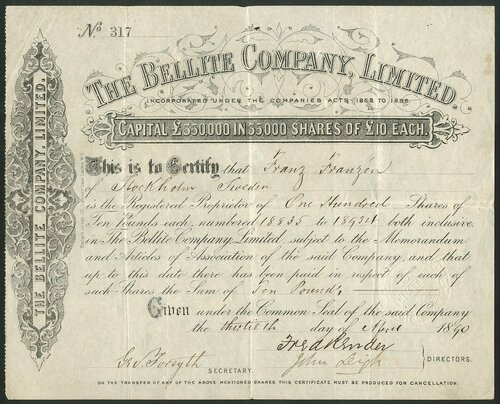 No 317
THE BELLITE COMPANY, LIMITED.
INCORPORATED UNDER THE COMPANIES ACTS 1862 TO 1886.
CAPITAL £350,000 IN 35,000 SHARES OF £10 EACH.
This is to Certify that Franz Franzén
of Stockholm Sweden
is the Registered Proprietor of One Hundred Shares of
Ten Pounds each, numbered 18835 to 18934 both inclusive,
in The Bellite Company, Limited, subject to the Memorandum
and Articles of Association of the said Company, and that
up to this date there has been paid in respect of each of
such Shares the Sum of Ten Pounds,
Given under the Common Seal of the said Company
the thirtieth day of April 1890
John Leigh
DIRECTORS.
Forsyth
SECRETARY
ON THE TRANSFER OF ANY OF THE ABOVE MENTIONED SHARES THIS CERTIFICATE MUST BE PRODUCED FOR CANCELLATION.
THE BELLITE COMPANY, LIMITED.